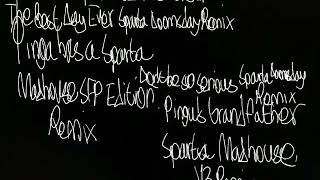 The Best Day Ever Sparta Doomsday Remix
Pinga has a Sparta
Madhouse SFP Edition
Remix
Don't be so serious Sparta Doomsday
Remix
Pingu's Grandfather
Sparta Madhouse
V3